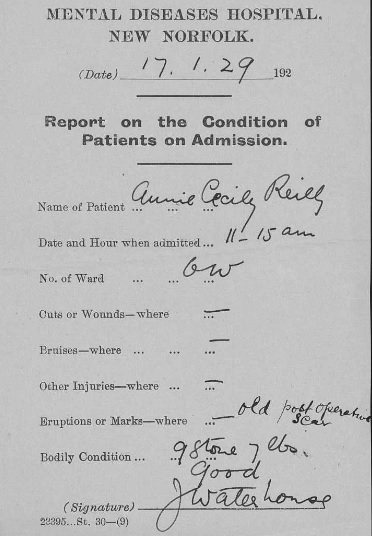 MENTAL DISEASES HOSPITAL,
NEW NORFOLK.
(Date) 17. 1. 29 192
Report on the Condition of
Patients on Admission.
Name of Patient ... Annie Cecily Reilly
Date and Hour when admitted ... 11-15 am
No. of Ward ... ... 6W
Cuts or Wounds—where ... —
Bruises—where ... ... ... —
Other Injuries—where ... ... —
Eruptions or Marks—where ... — old post operative
scar
Bodily Condition ... ... 9 stone 7 lbs.
Good
(Signature) J Waterhouse
22395...St. 30—(9)